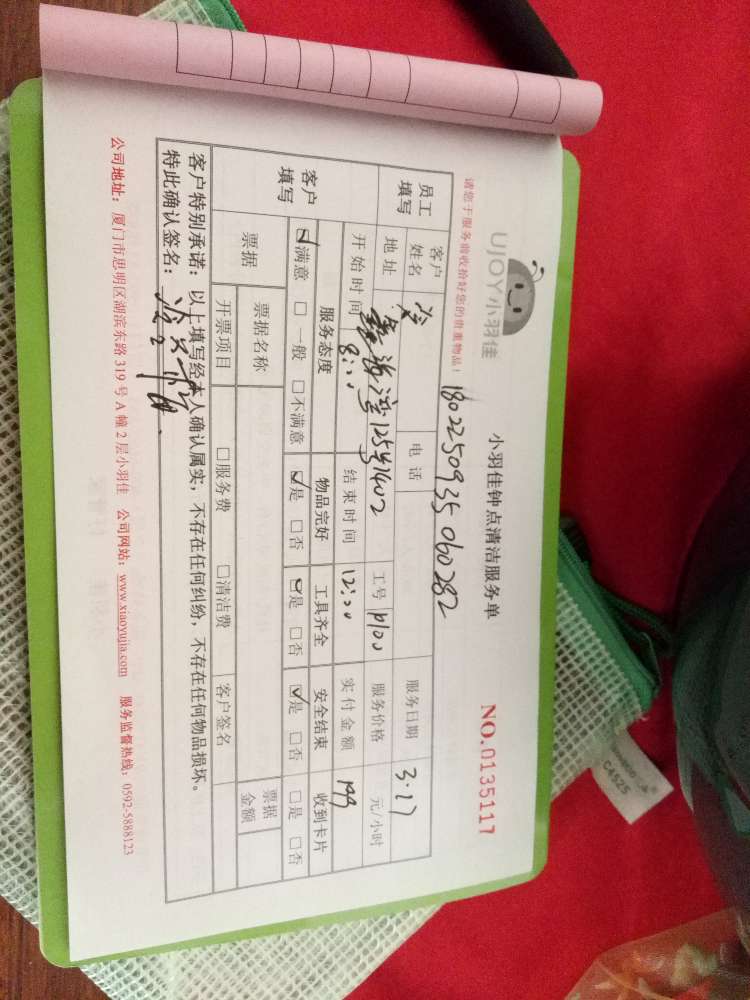 UJOY小羽佳
小羽佳钟点清洁服务单
NO.0135117
请您于服务前收拾好您的贵重物品!
180225093506 0282
员工填写
客户姓名
电话
服务日期 3.17
地址 海湾125号1402
工号 p100
服务价格 元/小时
开始时间 8:00
结束时间 12:00
实付金额 199
客户填写
服务态度 物品完好 工具齐全 安全结束 收到卡片
☑满意 □一般 □不满意 ☑是 □否 ☑是 □否 ☑是 □否 □是 □否
票据
票据名称
票据金额
开票项目 □服务费 □清洁费 客户签名
客户特别承诺:以上填写经本人确认属实,不存在任何纠纷,不存在任何物品损坏。
特此确认签名:
公司地址:厦门市思明区湖滨东路 319 号 A 幢 2 层小羽佳 公司网站:www.xiaoyujia.com 服务监督热线:0592-5888123
C4525